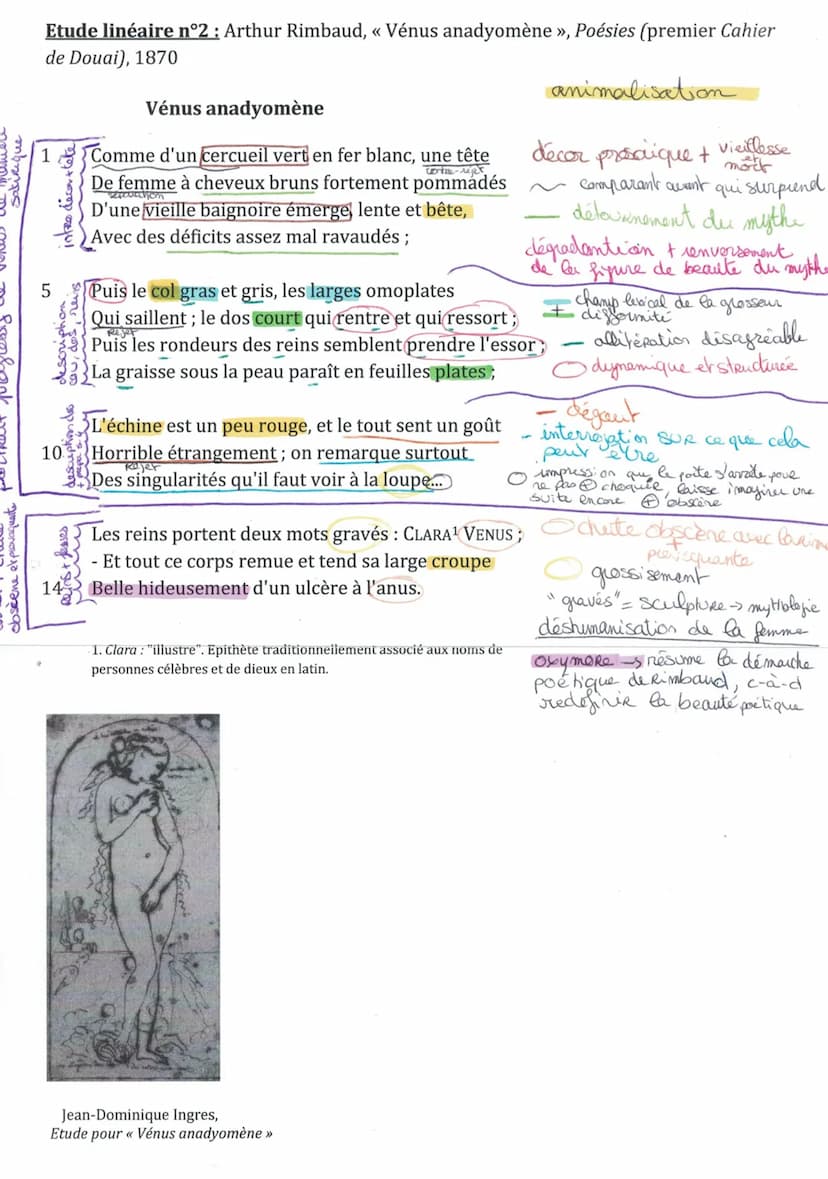 Etude linéaire n°2 : Arthur Rimbaud, « Vénus anadyomène », Poésies (premier Cahier
de Douai), 1870
animalisation
Vénus anadyomène
1 Comme d'un cercueil vert en fer blanc, une tête
contre-rejet
De femme à cheveux bruns fortement pommadés
D'une vieille baignoire émerge, lente et bête,
Avec des déficits assez mal ravaudés ;
5 Puis le col gras et gris, les larges omoplates
Qui saillent ; le dos court qui rentre et qui ressort ;
Rejet
Puis les rondeurs des reins semblent prendre l'essor ;
La graisse sous la peau paraît en feuilles plates ;
L'échine est un peu rouge, et le tout sent un goût
10 Horrible étrangement ; on remarque surtout
Rejet
Des singularités qu'il faut voir à la loupe...
Les reins portent deux mots gravés : CLARA¹ VENUS ;
- Et tout ce corps remue et tend sa large croupe
14 Belle hideusement d'un ulcère à l'anus.
1. Clara : "illustre". Epithète traditionnellement associé aux noms de
personnes célèbres et de dieux en latin.
intro décor + tête
description
cou, dos, reins
reins + fesses
obscène et provoquant
satirique
décor prosaïque + vieillesse
et
mort
comparant avant qui surprend
détournement du mythe
dégradantion + renversement
de la figure de beauté du mythe
+ champ lexical de la grosseur
difformité
allitération désagréable
dynamique et structurée
- dégout
- interrogation SUR ce que cela
peut être
impression que le poète s'arrête pour
ne pas + choquer, laisse imaginer une
suite encore + obscène
chute obscène avec la rime
+
provocante
grossissement
"gravés" = sculpture → mythologie
déshumanisation de la femme
oxymore → résume la démarche
poétique de Rimbaud, c-à-d
redéfinir la beauté poétique
Jean-Dominique Ingres,
Etude pour « Vénus anadyomène »